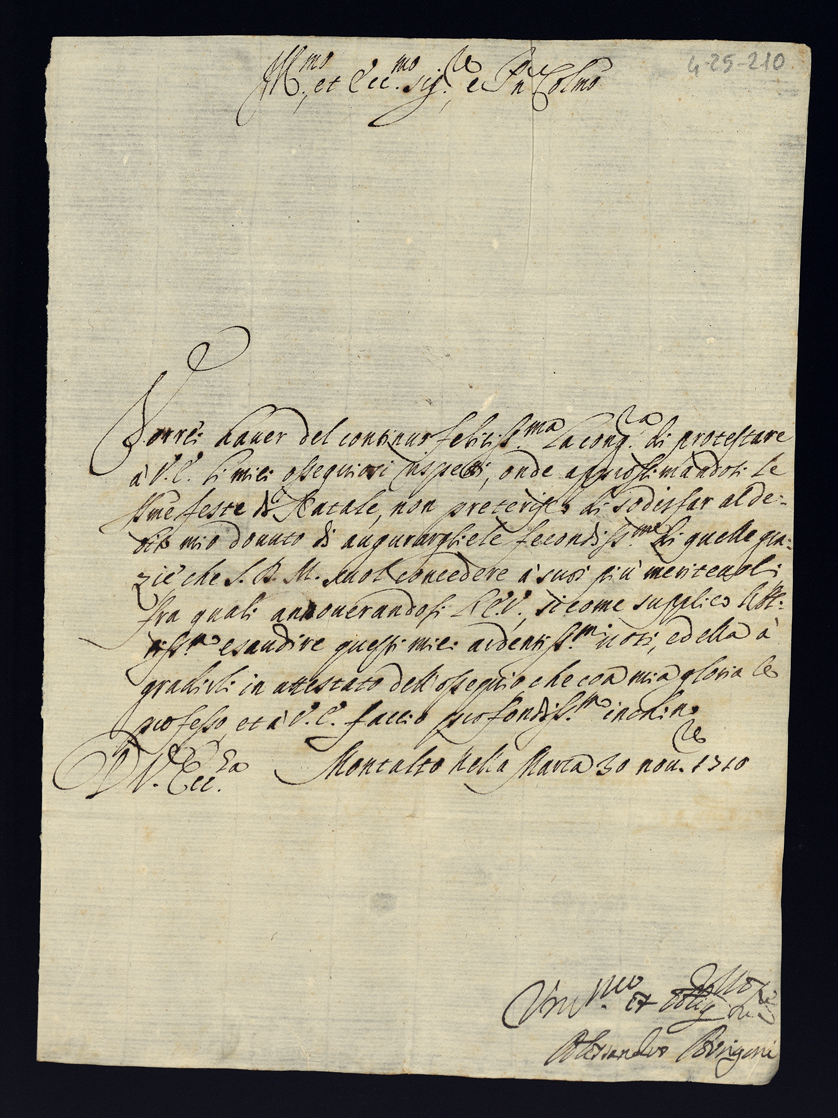 4-25-210
Ill.mo, et Ecc.mo Sig.re e P.ne Col.mo
Vorrei haver del continuo feliciss.ma la cong.ra di protestare
à V. E. li miei ossequiosi rispetti, onde approssimandosi le
S.me feste di Natale, non preterisco di sodisfar al de-
bito mio douuto di augurargliele fecondiss.me di quelle gra-
zie che S. D. M. suol concedere à suoi più meriteuoli
fra quali annouerandosi l'E.V., si come supplico l'Alt-
iss.mo esaudire questi miei ardentiss.mi uoti, ed ella à
gradirli in attestato dell'ossequio che con mia gloria le
professo, et à V. E. faccio profondiss.mo inchino
D V. Ecc.za Montalto nella Marca 30 nou.re 1710
Um.mo et Obblig.mo
Alessandro